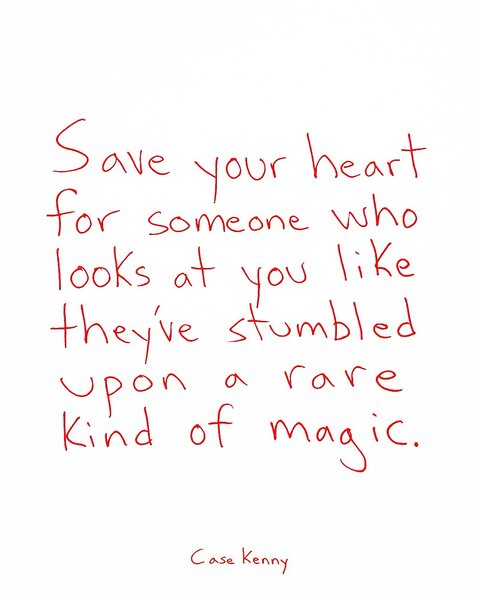 Save your heart
for someone who
looks at you like
they've stumbled
upon a rare
kind of magic.
Case Kenny